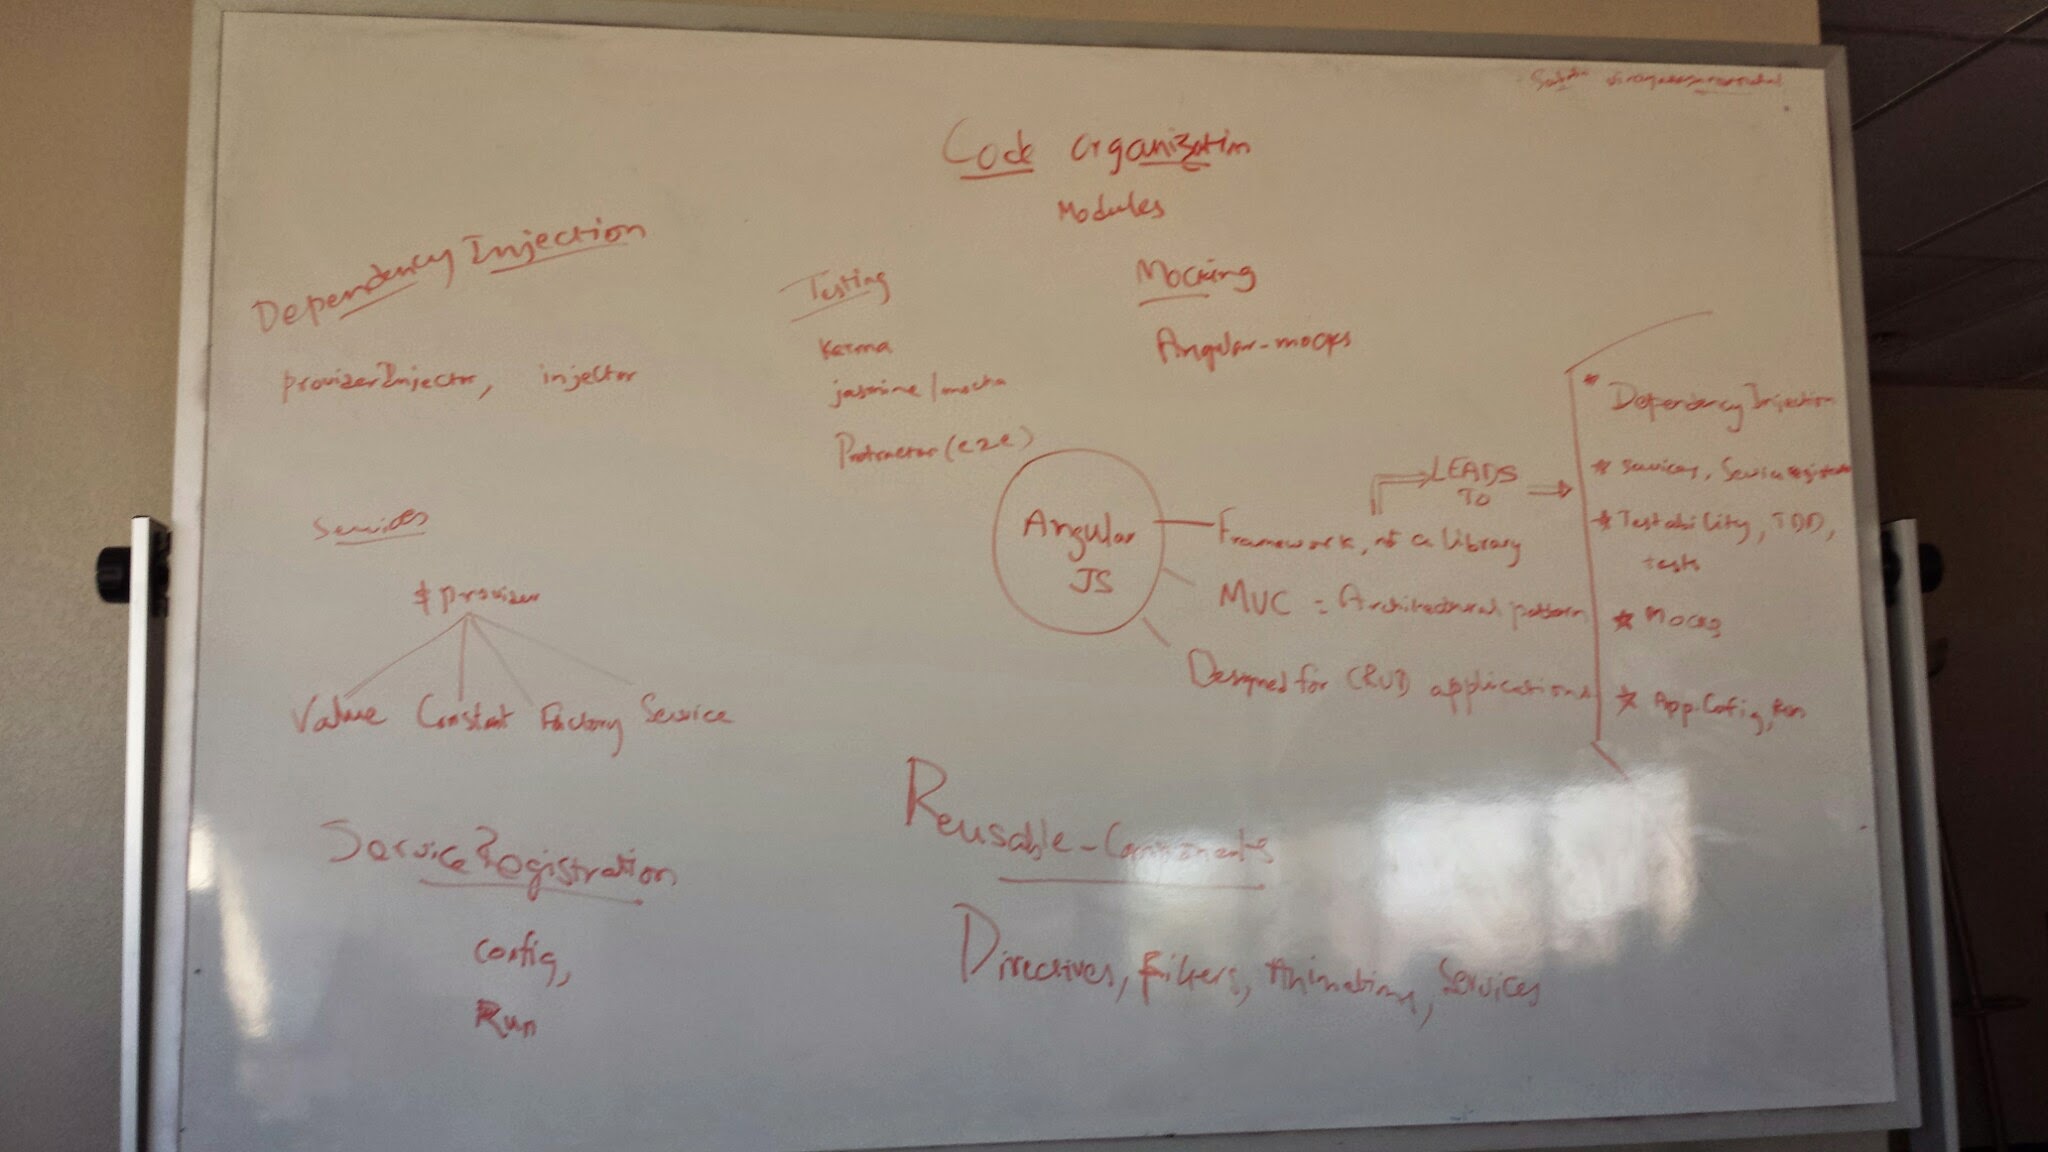 Code Organization
Modules
Dependency Injection
providerInjector, injector
Testing
Karma
jasmine/mocha
Protractor (e2e)
Mocking
Angular-mocks
Services
$provider
Value Constant Factory Service
Service Registration
Config,
Run
Angular
JS
Framework, not a library
MVC = Architectural pattern
Designed for CRUD applications
LEADS
TO
* Dependency Injection
* Services, Service
* Testability, TDD,
tests
* Mocks
* App.Config, Run
Reusable-Components
Directives, Filters, Animations, Services